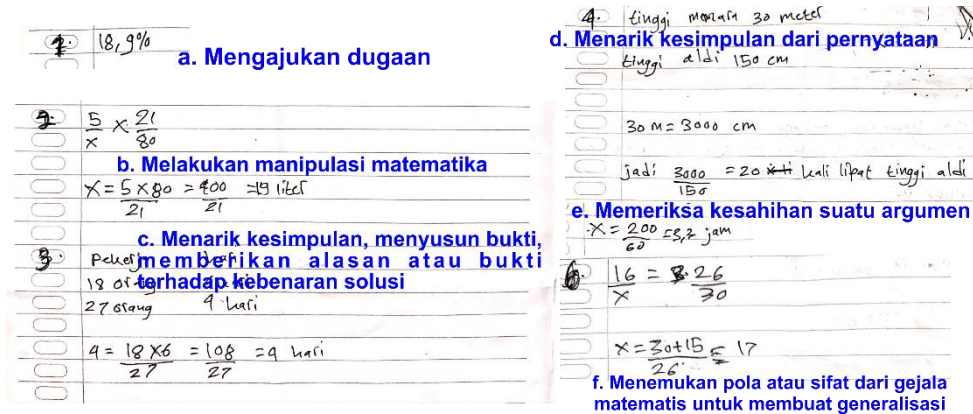 1. 18,9%
a. Mengajukan dugaan
2. 5/x × 21/80
b. Melakukan manipulasi matematika
x = 5×80/21 = 400/21 = 19 liter
c. Menarik kesimpulan, menyusun bukti,
memberikan alasan atau bukti
terhadap kebenaran solusi
3.
18
27 orang 4 hari
4 = 18×6/27 = 108/27 = 4 hari
4. tinggi menara 30 meter
d. Menarik kesimpulan dari pernyataan
tinggi aldi 150 cm
30 M = 3000 cm
jadi 3000/150 = 20 kali lipat tinggi aldi
e. Memeriksa kesahihan suatu argumen
x = 200/60 = 3,3 jam
6. 16/x = 26/30
x = 30+15/26 = 17
f. Menemukan pola atau sifat dari gejala
matematis untuk membuat generalisasi